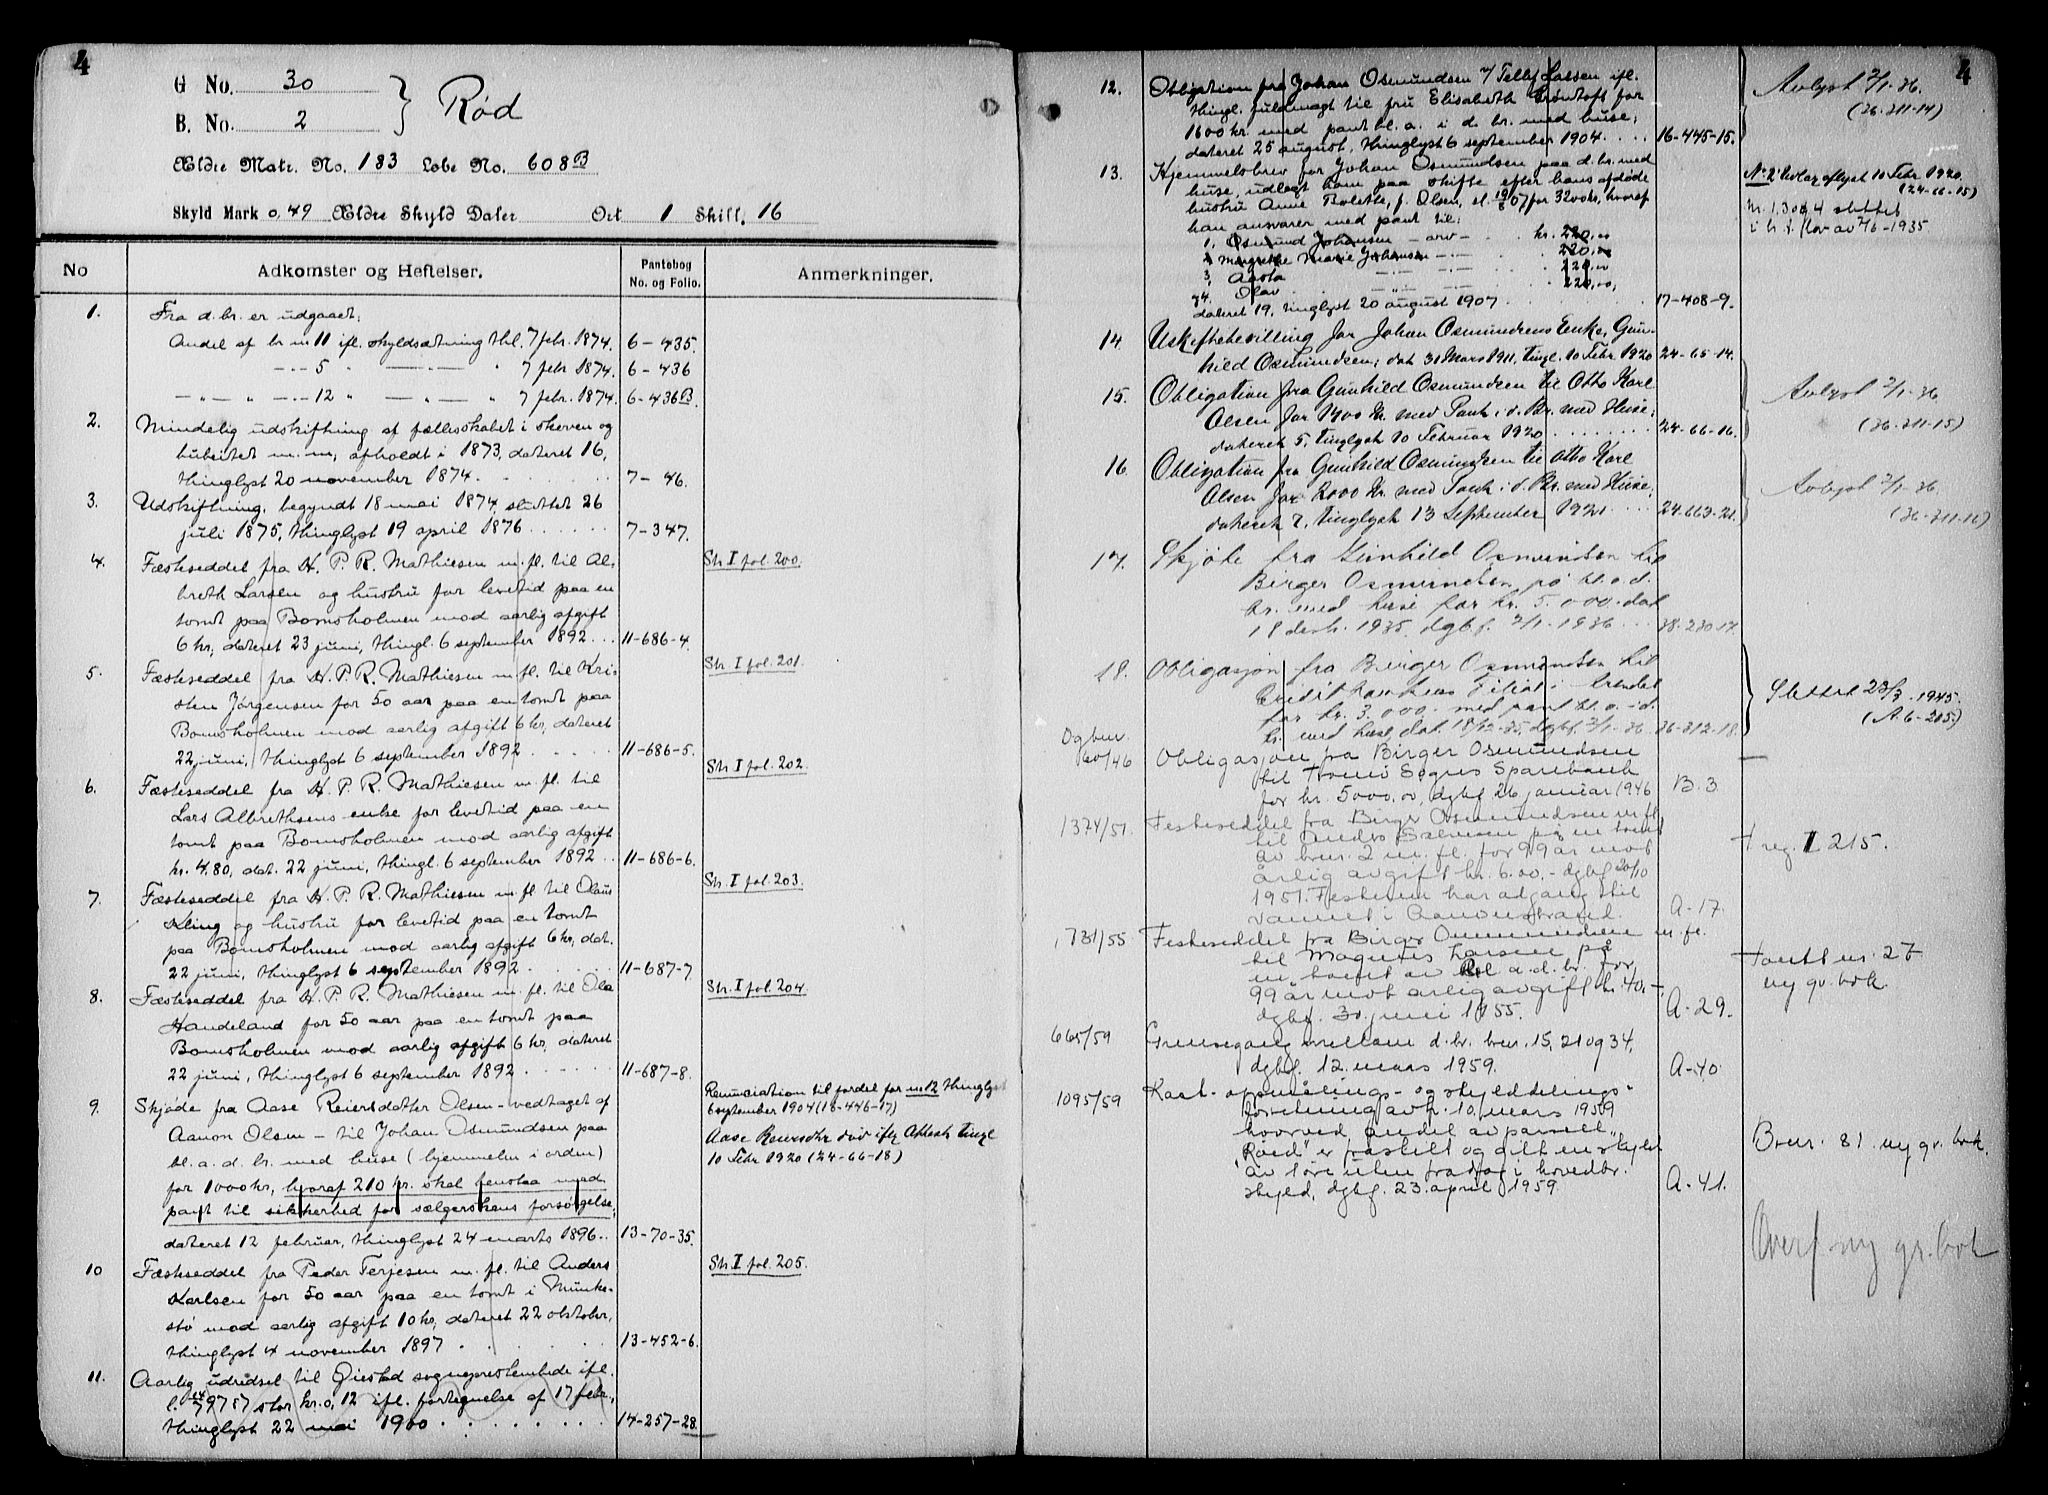 4
G No. 30
B. No. 2
Rød
Ældre Matr. No. 183 Løbe No. 608B
Skyld Mark 0,49 Ældre Skyld Daler Ort 1 Skill. 16
No Adkomster og Heftelser. Pantebog No. og Folio. Anmerkninger.
1. Fra d. br. er udgaaet;
Andel af br. nr 11 ifl. skyldsætning thl. 7 febr. 1874. 6-435.
-.- 5 " -.- " 7 febr 1874. 6-436
-"- " -.- 12 " -"- " 7 febr. 1874. 6-436B.
2. Mindelig udskiftning af fællesskabet i skerven og
m.m, afholdt i 1873, dateret 16,
thinglyst 20 november 1874. 7-46.
3. Udskiftning, begyndt 18 mai 1874, sluttet 26
juli 1875, thinglyst 19 april 1876 7-347.
4. Fæsteseddel fra H. P. R. Mathiesen m. fl. til Al- Str. I fol. 200.
breth Larsen og hustru for levetid paa en
tomt paa Bomsholmen mod aarlig afgift
6 kr, dateret 23 juni, thingl. 6 september 1892 11-686-4.
5. Fæsteseddel fra H. P. R. Mathiesen m. fl. til Kri- Str. I fol. 201.
sten Jørgensen for 50 aar paa en tomt paa
Bomsholmen mod aarlig afgift 6 kr, dateret
22 juni, thinglyst 6 september 1892 11-686-5.
6. Fæsteseddel fra H. P. R. Mathiesen m. fl. til Str. I fol. 202.
Lars Albrethsens enke for levetid paa en
tomt paa Bomsholmen mod aarlig afgift
kr. 4.80, dat. 22 juni, thingl. 6 september 1892 11-686-6.
7. Fæsteseddel fra H. P. R. Mathiesen m. fl. til Olaus Str. I fol. 203.
Kling og hustru for levetid paa en tomt
paa Bomsholmen mod aarlig afgift 6 kr, dat.
22 juni, thinglyst 6 september 1892 11-687-7.
8. Fæsteseddel fra H. P. R. Mathiesen m. fl. til Ola Str. I fol. 204.
Handeland for 50 aar paa en tomt paa
Bomsholmen mod aarlig afgift 6 kr, dateret
22 juni, thinglyst 6 september 1892 11-687-8.
9. Skjøde fra Aase Reiersdatter Olsen - vedtaget af
Aanon Olsen - til Johan Osmundsen paa
bl. a. d. br. med huse (hjemmelen i orden)
for 1000 kr, hvoraf 210 kr. skal henstaa med
pant til sikkerhed for sælgerskens forsørgelse,
dateret 12 februar, thinglyst 24 marts 1896 13-70-35.
Renunciation til fordel for nr 12 thinglyst
6 september 1904 (16-446-17)
Aase Reiersdtr død ifly Attest tingl
10 Febr 1920 (24-66-18)
10 Fæsteseddel fra Peder Terjesen m. fl. til Anders Str. I fol. 205.
Karlsen for 50 aar paa en tomt i Munke-
stø mod aarlig afgift 10 kr, dateret 22 oktober,
thinglyst 4 november 1897 13-452-6.
11. Aarlig udredsel til Øiestad sogneprestembede ifl.
l. 14/7 97 § 7 stor kr. 0,12 ifl. fortegnelse af 17 febr.,
thinglyst 22 mai 1900 14-257-28.
4
12. Obligation fra Johan Osmundsen v/ Tellef Larsen ifl.
thingl. fuldmagt til fru Elisabeth Grøntoft for
1600 kr. med pant bl. a. i d. br. med huse;
dateret 25 august, thinglyst 6 september 1904 16-445-15.
Avlyst 2/1-36.
(36-311-14)
13. Hjemmelsbrev for Johan Osmundsen paa d. br. med
huse, udlagt ham paa skifte efter hans afdøde
hustru Anne Bolette, f. Olsen, sl. 19/8 07 for 3200 kr, hvoraf
han ansvarer med pant til:
1, Osmund Johansen - arv - kr. 220,00
2 Margrethe Marie Johansen -.- 220,00
3, Aasta -.- 220,00
4. Olav -"- 220,00,
dateret 19, tinglyst 20 august 1907 17-408-9.
Nr 2 avlyst 10 Febr 1920.
(24-66-15)
Nr. 1, 3 og 4 slettet
i h. t. lov av 7/6-1935
14 Uskiftebevilling for Johan Osmundsens Enke, Gun-
hild Osmundsen; dat 31 Mars 1911, tingl. 10 Febr 1920 24-65-14.
15. Obligation fra Gunhild Osmundsen til Otto Karl
Olsen for 1400 kr. med Pant i d. Br. med Huse;
dateret 5, tinglyst 10 Februar 1920 24-66-16.
Avlyst 2/1-36
(36-311-15)
16 Obligation fra Gunhild Osmundsen til Otto Karl
Olsen for 2000 kr. med Pant i d. Br. med Huse,
dateret 7, tinglyst 13 September 1921 24-663-21.
Avlyst 2/1-36.
(36-311-16)
17. Skjøte fra Gunhild Osmundsen til
Birger Osmundsen på bl. a. d.
br. med huse for kr. 5.000. dat
18 desb. 1935. dgbf. 2/1-1936 38-230-17.
18. Obligasjon fra Birger Osmundsen til
Creditbankens Filial i Arendal
for kr. 3.000.- med pant bl. a. i d.
br. med huse, dat. 18/12-35, dgbf. 2/1-36 36-312-18.
Slettet 23/3-1945.
(A.6-215)
Dgbnr.
60/46 Obligasjon fra Birger Osmundsen
til Tromø Sogns Sparebank
for kr. 5000.00, dgbf. 26 januar 1946 B. 3
1374/51. Festeseddel fra Birger Osmundsen m. fl.
til Anders på en tomt
av bnr. 2 m. fl. for 99 år mot
årlig avgift kr. 6.00,- dgbf 20/10
1951. Festeren har adgang til
vannet i Aanonstrand. A-17.
F reg. I 215.
731/55 Festeseddel fra Birger Osmundsen m. fl.
til Magnus Larsen på
en tomt av bl. a. d. br. for
99 år mot årlig avgift kr. 40,-,
dgbf. 30. juni 1955. A-29.
Tomt nr. 27
ny gr. bok.
665/59 Grensegang mellem d. br. bnr. 15, 21 og 34,
dgbf. 12. mars 1959. A-40.
1095/59 Kart-oppmålings- og skylddelings-
forretning avh. 10. mars 1959
hvorved andel av parsell
"Røed" er fraskilt og gitt en skyld
av 1 øre uten fradrag i hovedbr.
skyld, dgbf. 23. april 1959. A-41.
Bnr. 81. ny gr. bok.
Overf ny gr. bok